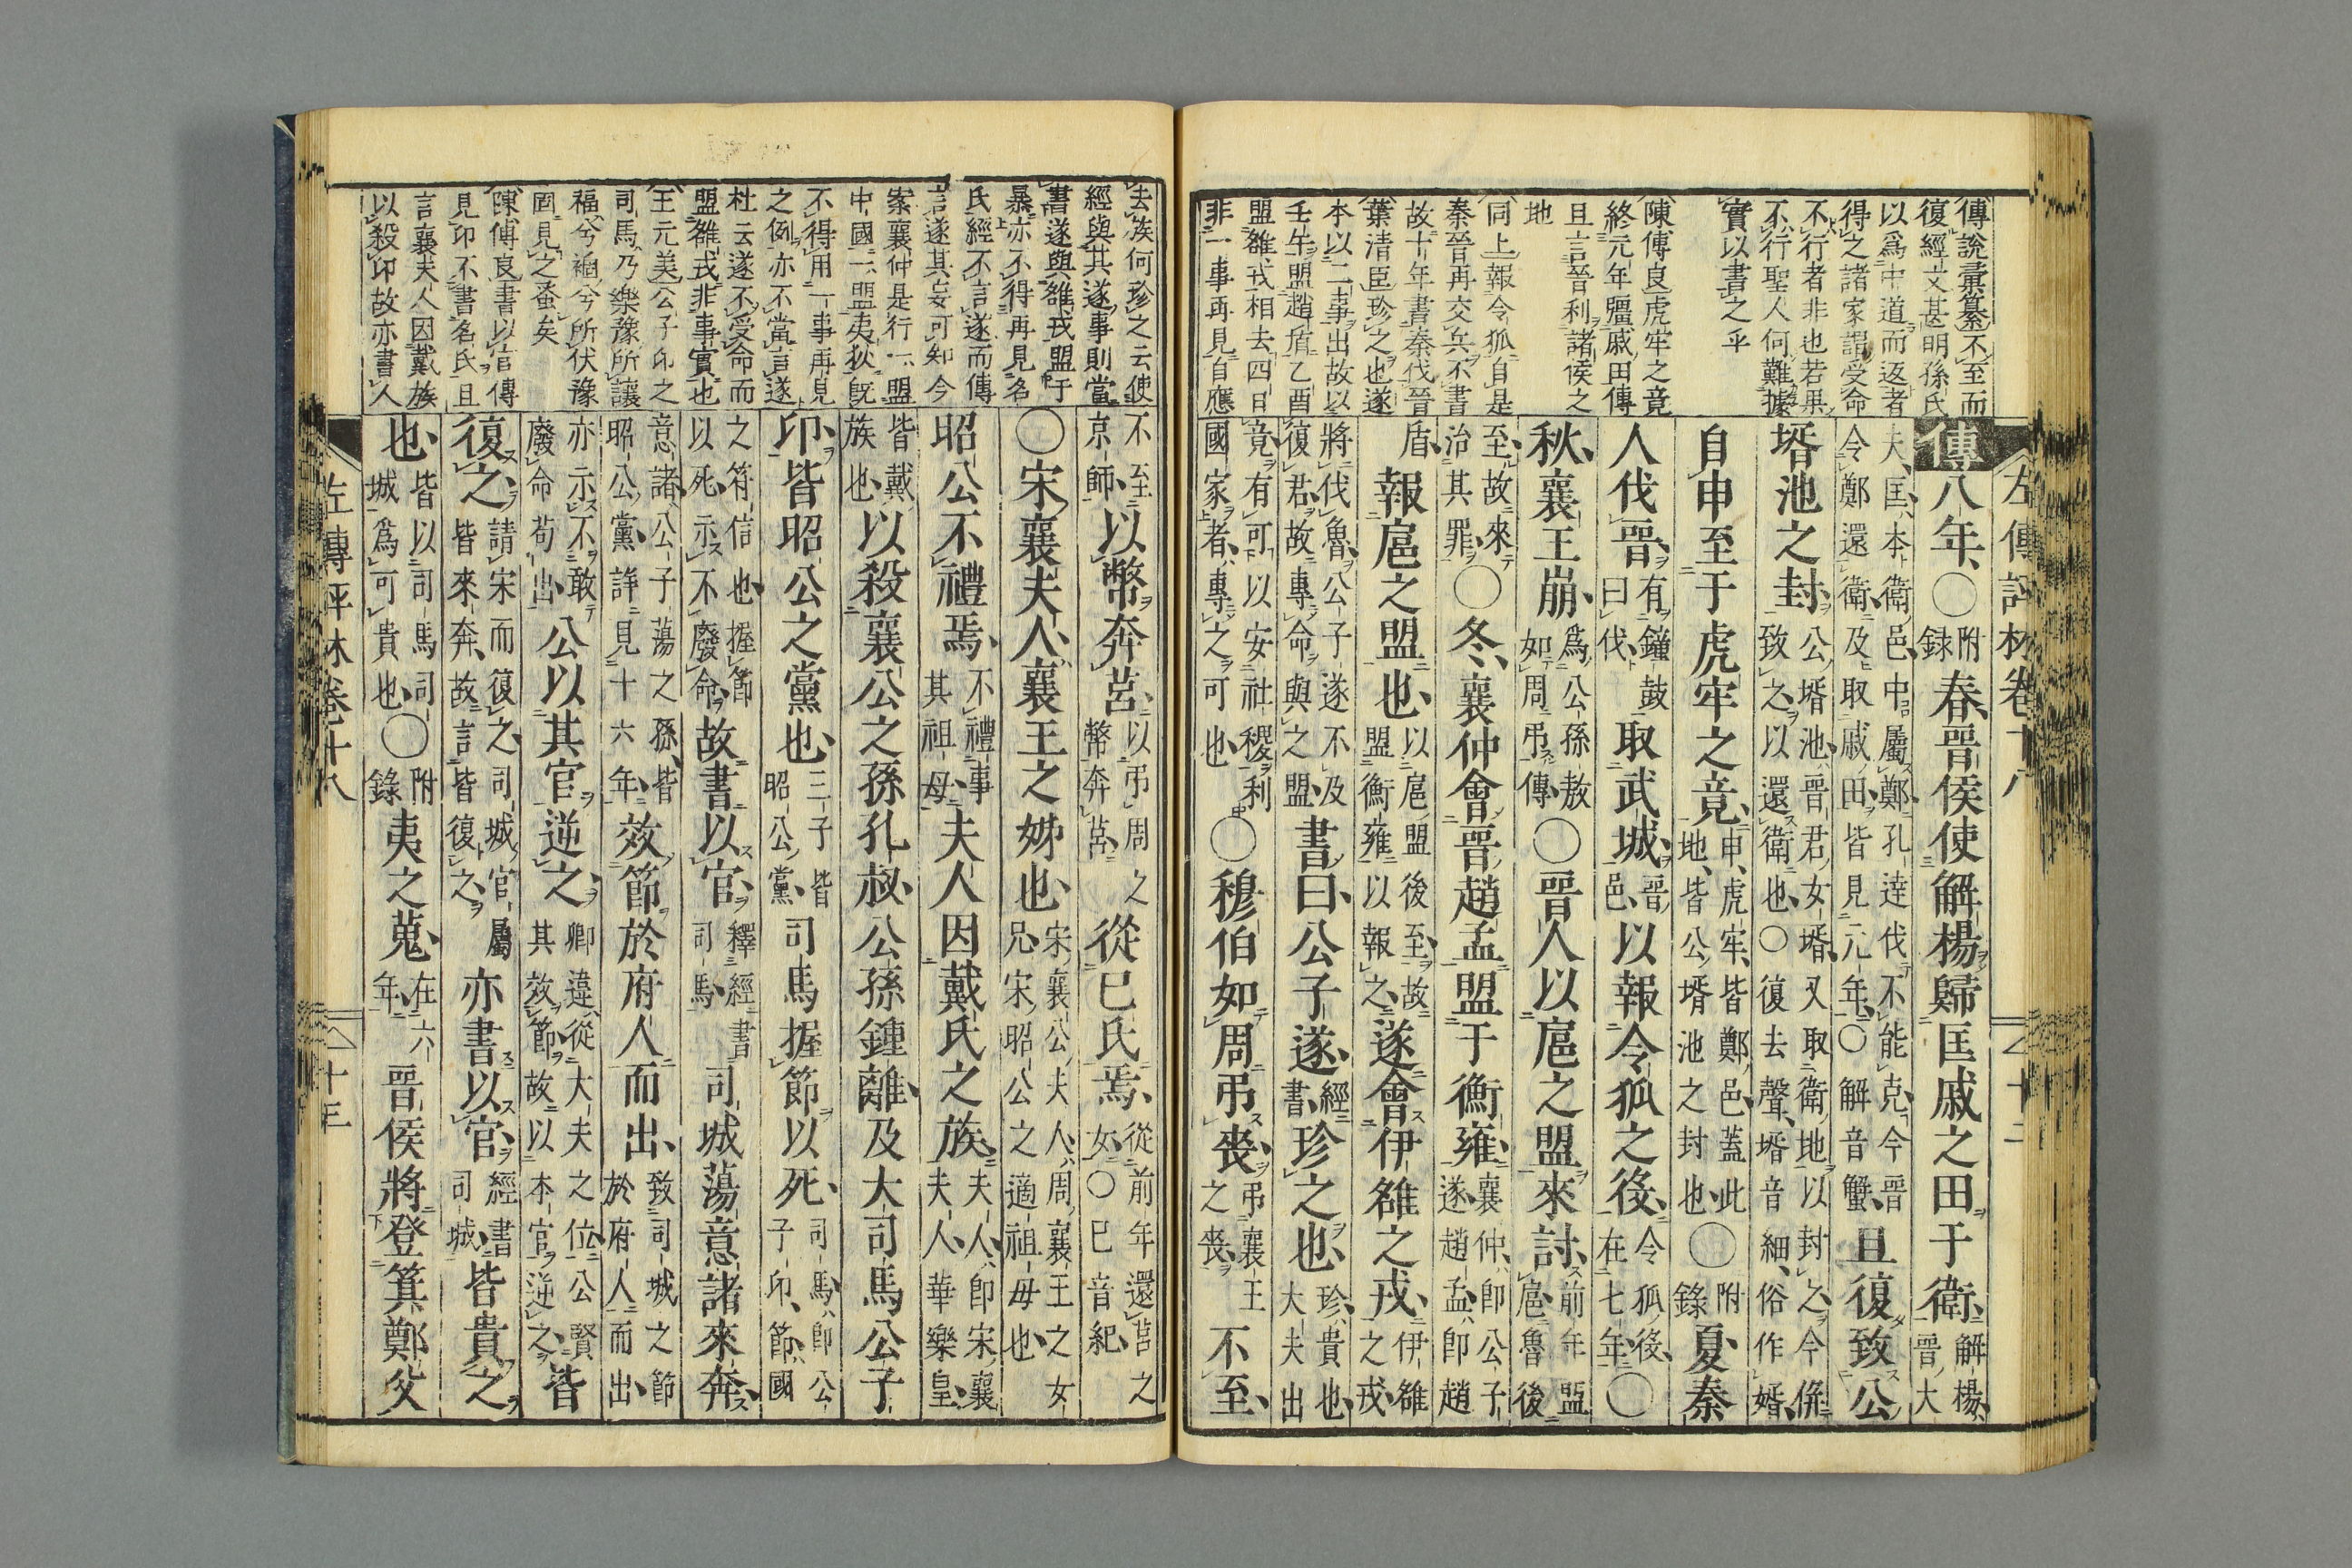 左傳評林卷十八
傳說彙纂不至而
復經文甚明孫氏
以爲中道而返者
得之諸家謂受命
不行者非也若果
不行聖人何難據
實以書之乎
陳傅良虎牢之竟
終元年疆戚田傳
且言晉利諸侯之
地
同上報令狐自是
秦晉再交兵不書
故十年書秦伐晉
葉清臣珍之也遂
本以二事出故以
壬午盟趙盾乙酉
盟雒戎相去四日
非一事再見自應
傳八年〇附錄春晉侯使解楊歸匡戚之田于衛解楊晉大
夫匡本衛邑中屬鄭孔達伐不能克今晉令鄭還衛及取戚田皆見元年〇解音蟹且復致公
壻池之封公壻池晉君女壻又取衛地以封之今倂致之以還衛也〇復去聲壻音細俗作婿
自申至于虎牢之竟申虎牢皆鄭邑蓋此地皆公壻池之封也〇附錄夏秦
人伐晉有鐘鼓曰伐取武城晉邑以報令狐之役令狐役在七年〇
秋襄王崩爲公孫敖如周弔傳〇晉人以扈之盟來討前年盟扈魯後
至故來治其罪〇冬襄仲會晉趙孟盟于衡雍襄仲卽公子遂趙孟卽趙
盾報扈之盟也以扈盟後至故盟衡雍以報之遂會伊雒之戎伊雒之戎
將伐魯公子遂不及復君故專命與之盟書曰公子遂經書珍之也珍貴也大夫出
竟有可以安社稷利國家者專之可也〇穆伯如周弔喪弔襄王之喪不至
去族何珍之云使
經與其遂事則當
書遂與雒戎盟于
暴亦不得再見名
氏經不言遂而傳
言遂其妄可知今
案襄仲是行一盟
中國一盟夷狄旣
不得用一事再見
之例亦不當言遂
杜云遂不受命而
盟雒戎非事實也
王元美公子卬之
司馬乃樂豫所讓
福兮禍兮所伏豫
固見之蚤矣
陳傅良書以官傳
見卬不書名氏且
言襄夫人因戴族
以殺卬故亦書人
不至京師以幣奔莒以弔周之幣奔莒從已氏焉從前年還莒之女〇已音紀
〇宋襄夫人襄王之姊也宋襄公夫人周襄王之女兄宋昭公之適祖母也
昭公不禮焉不禮事其祖母夫人因戴氏之族夫人卽宋襄夫人華樂皇
皆戴族也以殺襄公之孫孔叔公孫鍾離及大司馬公子
卬皆昭公之黨也三子皆昭公黨司馬握節以死司馬卽公子卬節國
之符信也握節以死示不廢命故書以官釋經書司馬司城蕩意諸來奔
意諸公子蕩之孫皆昭公黨詳見十六年效節於府人而出致司城之節於府人而出
亦示不敢廢命苟出公以其官逆之卿違從大夫之位公賢其效節故以本官逆之皆
復之請宋而復之司城官屬皆來奔故言皆復之亦書以官經書司城皆貴之
也皆以司馬司城爲可貴也〇附錄夷之蒐在六年晉侯將登箕鄭父
左傳評林卷十八 十三